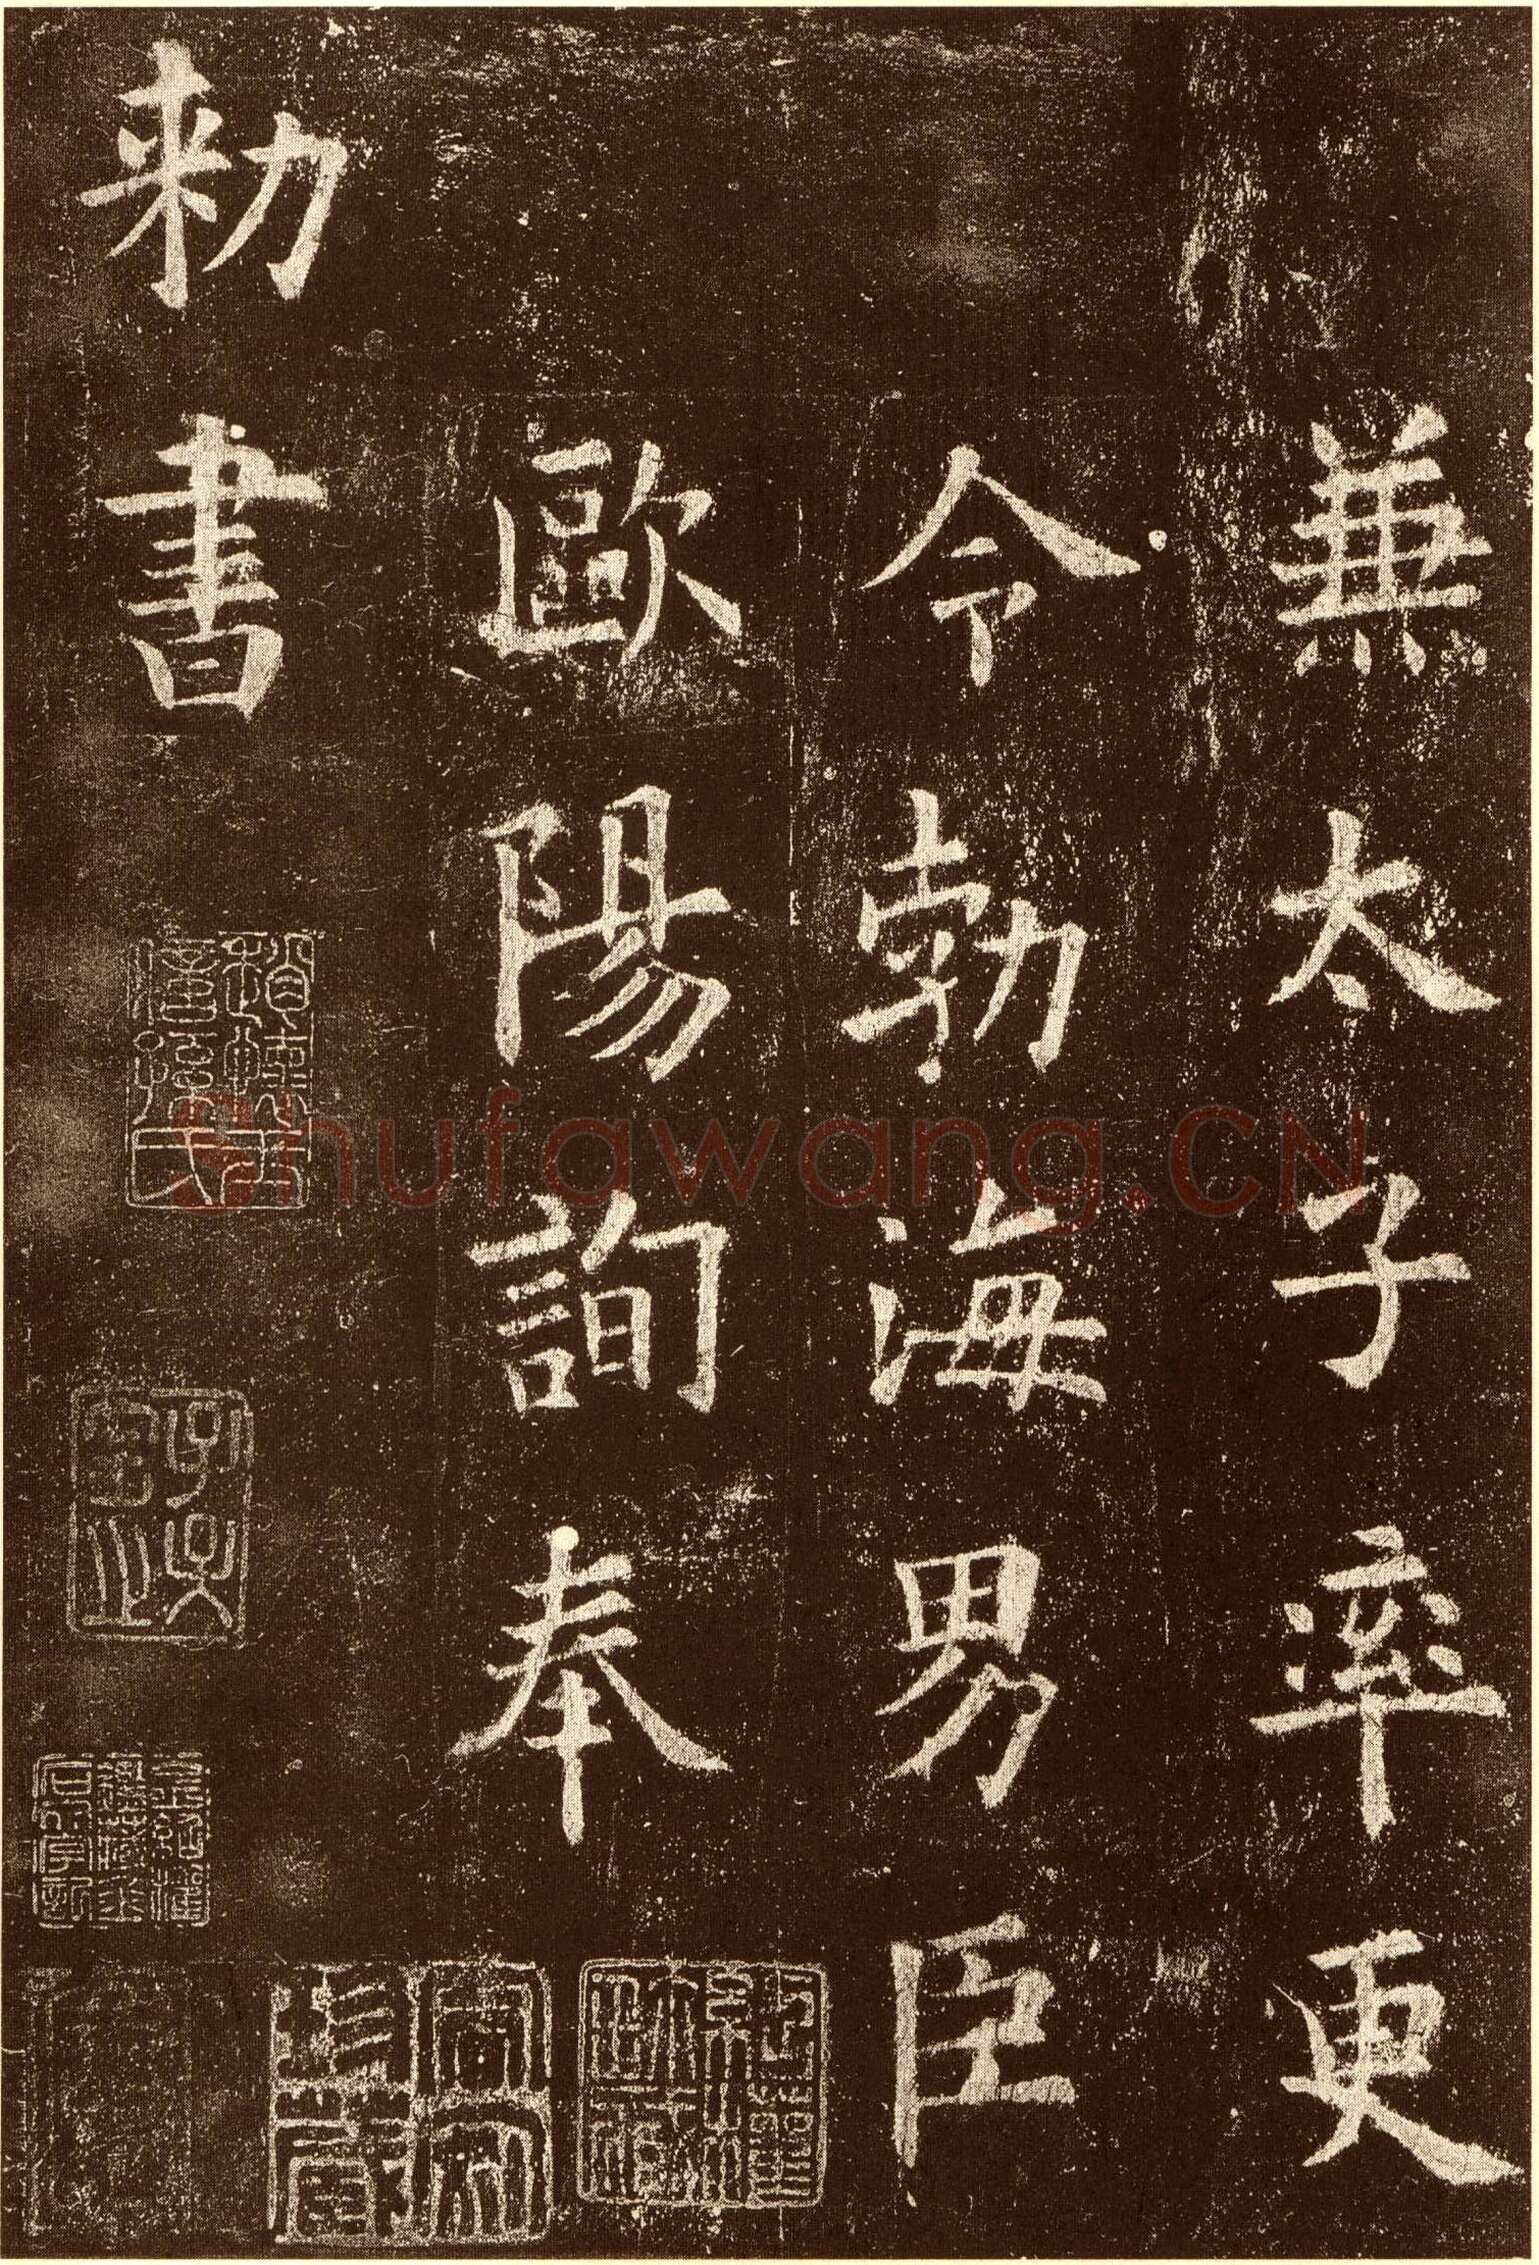 兼太子率更
令勃海男臣
歐陽詢奉
勅書
Shufawang.CN